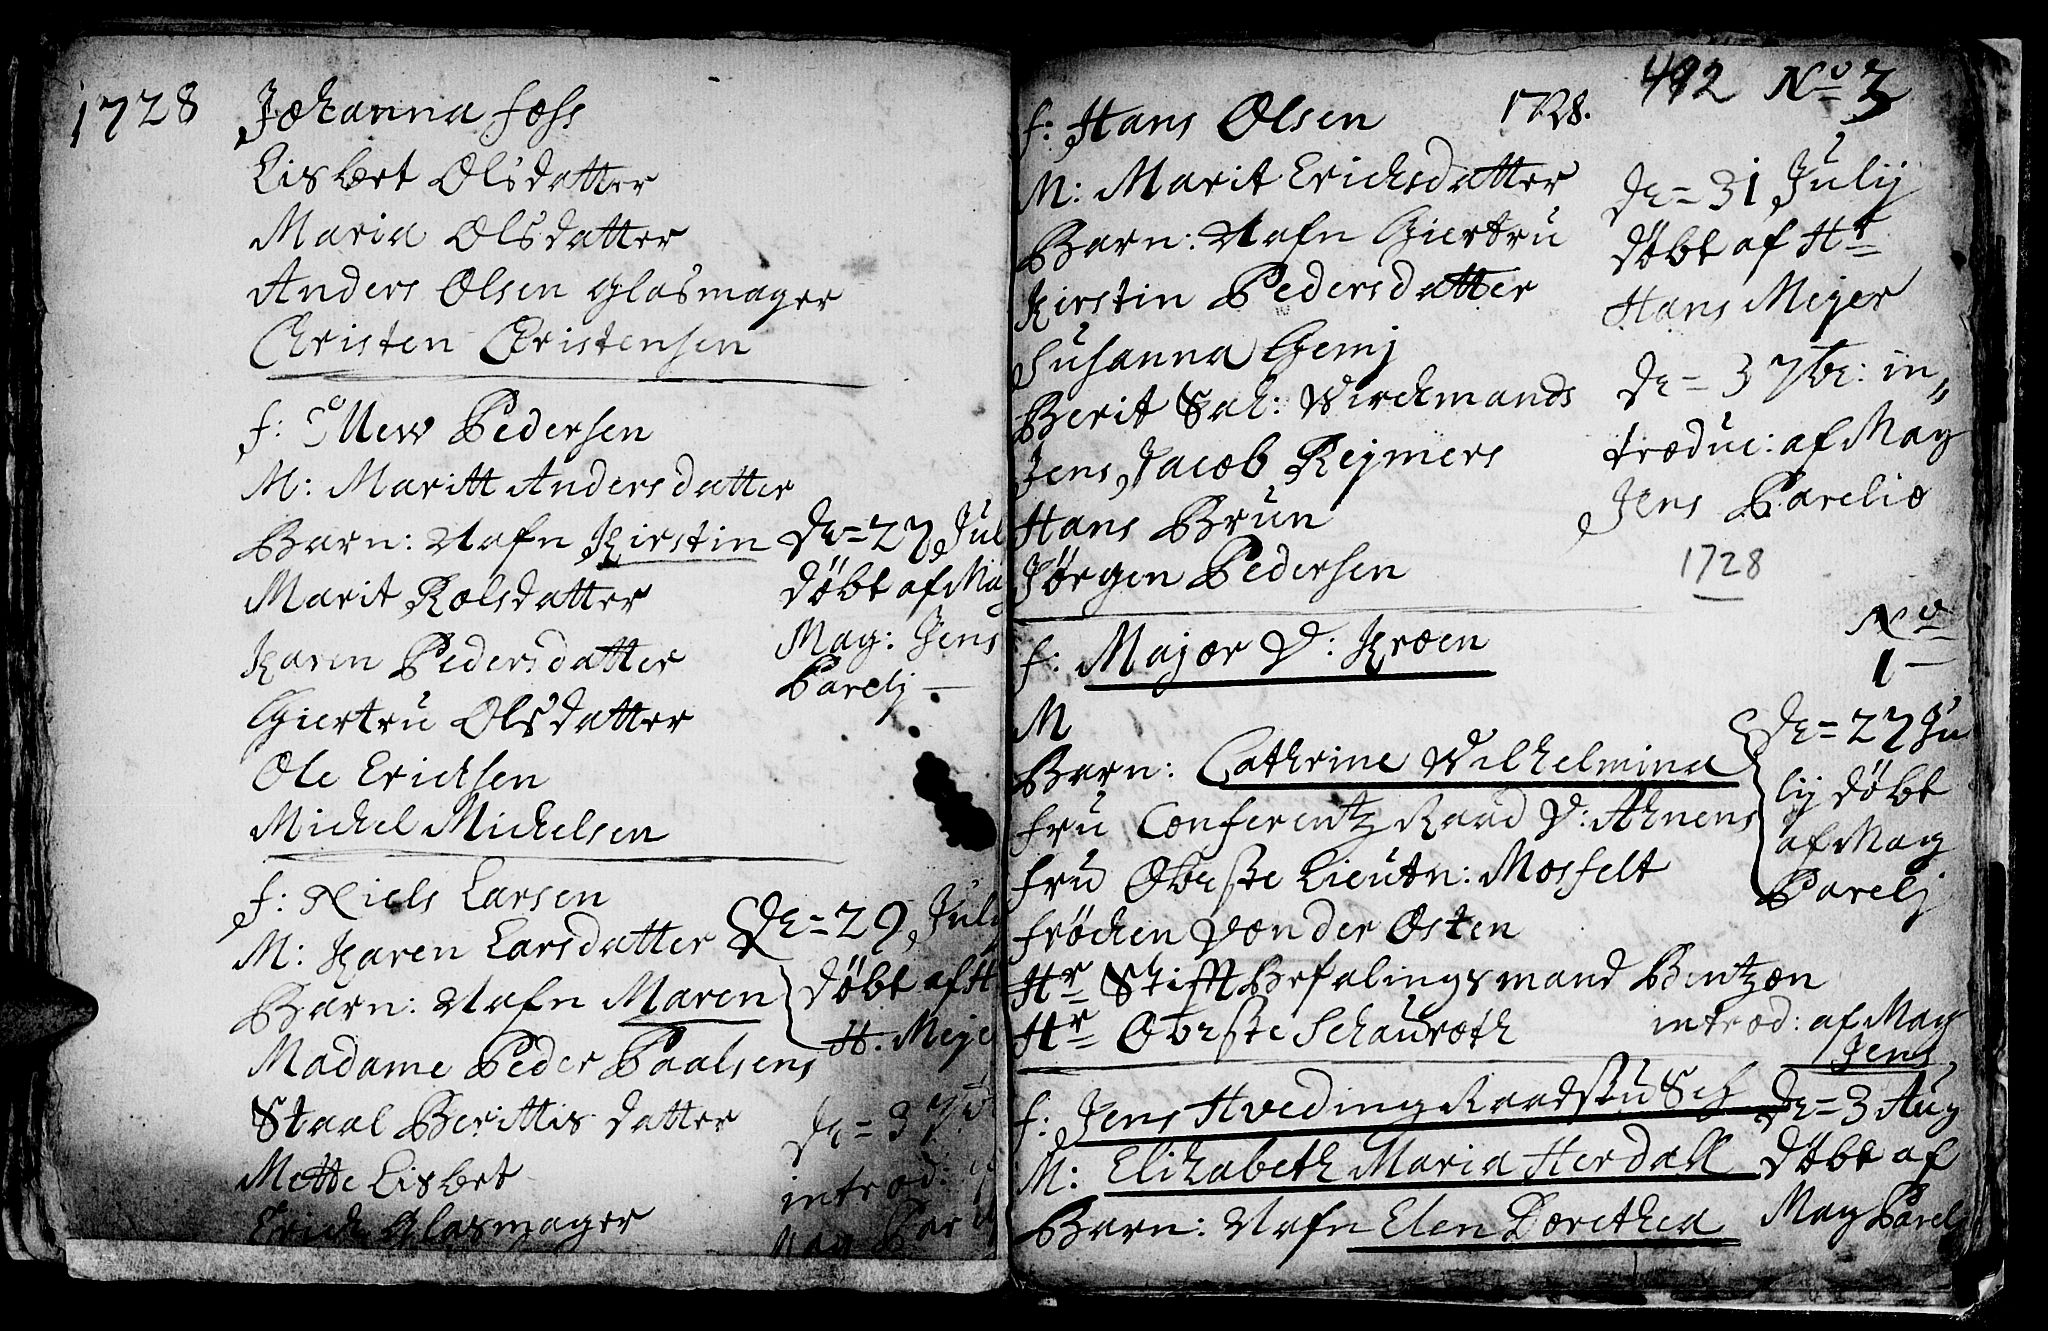 1728
Johanna Foss
Lisbet Olsdatter
Maria Olsdatter
Anders Olsen Glasmager
Christen Christensen
f: Pedersen
M: Maritt Andersdatter
Barn: Nafn Kirstin
d. = 27 Jul
döbt af Mag
Mag: Jens
Parelj
Marit Rolsdatter
Karen Pedersdatter
Giertru Olsdatter
Ole Ericksen
Michel Michelsen
f: Niels Larsen
M: Karen Larsdatter
Barn: Nafn Maren
d. = 29 July
döbt af H
H. Meje
Madame Peder Paalsens
Staal Berittis datter
Mette Lisbet
Erich Glasmager
d. = 3 7b
introd:
Mag Par
492 No 3
1728.
f: Hans Olsen
M: Marit Erichsdatter
Barn: Nafn Giertru
d. = 31 Julij
döbt af Hr
Hans Mejer
Kirstin Pedersdatter
Susanna Gemj
Berit Sal: Wirckmands
Jens Jacob Rejmers
Hans Brun
Jörgen Pedersen
d. = 3 7br: in„
troduc: af Mag
Jens Parelio
1728
No
1
f: Major V: Kroen
M
Barn: Cathrine Wilhelmina
d. = 27 Ju
lij döbt
af Mag
Parelj
Fru Conferentz Raad V: Ahnens
Fru Oberste Lieutn: Mosfelt
Fröchen Von der Osten
Hr Stifft Befalingsmand Bentzon
Hr Oberste Schauroth
introd: af Mag
Jens
f: Jens Hveding Raadstu Sch
M: Elizabeth Maria Herdall
Barn: Nafn Elen Dorethea
d. = 3 Aug
döbt af
Mag Parelj